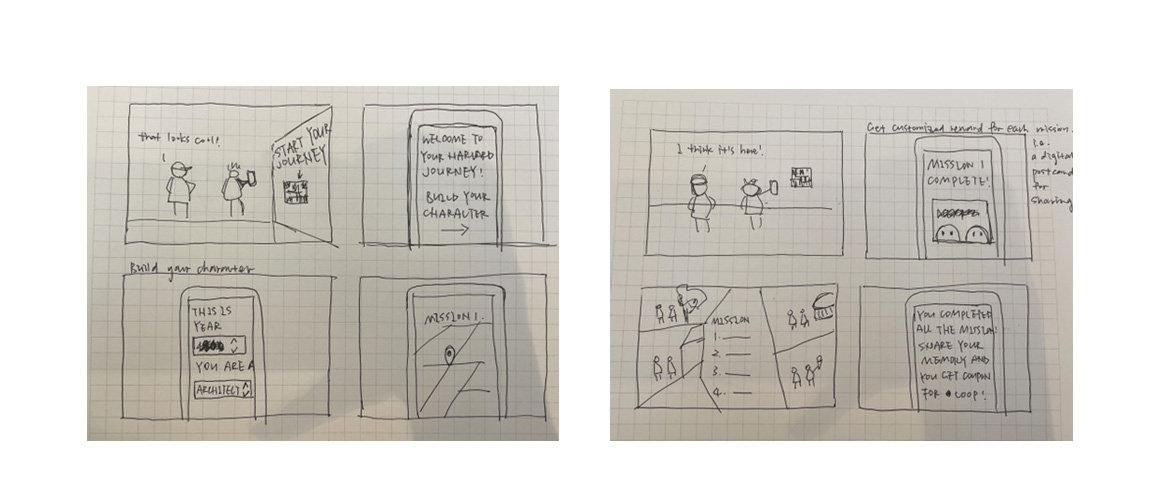 that looks cool!
START YOUR
JOURNEY
WELCOME TO
YOUR HARVARD
JOURNEY!
BUILD YOUR
CHARACTER
Build your character
THIS IS
YEAR
YOU ARE A
ARCHITECT
MISSION 1.
I think it's here!
Get customized reward for each mission.
i.e.
a digital
postcard
for
sharing
MISSION 1
COMPLETE!
MISSION
1.
2.
3.
4.
YOU COMPLETED
ALL THE MISSION!
SHARE YOUR
MEMORY AND
YOU GET COUPON
FOR COOP!